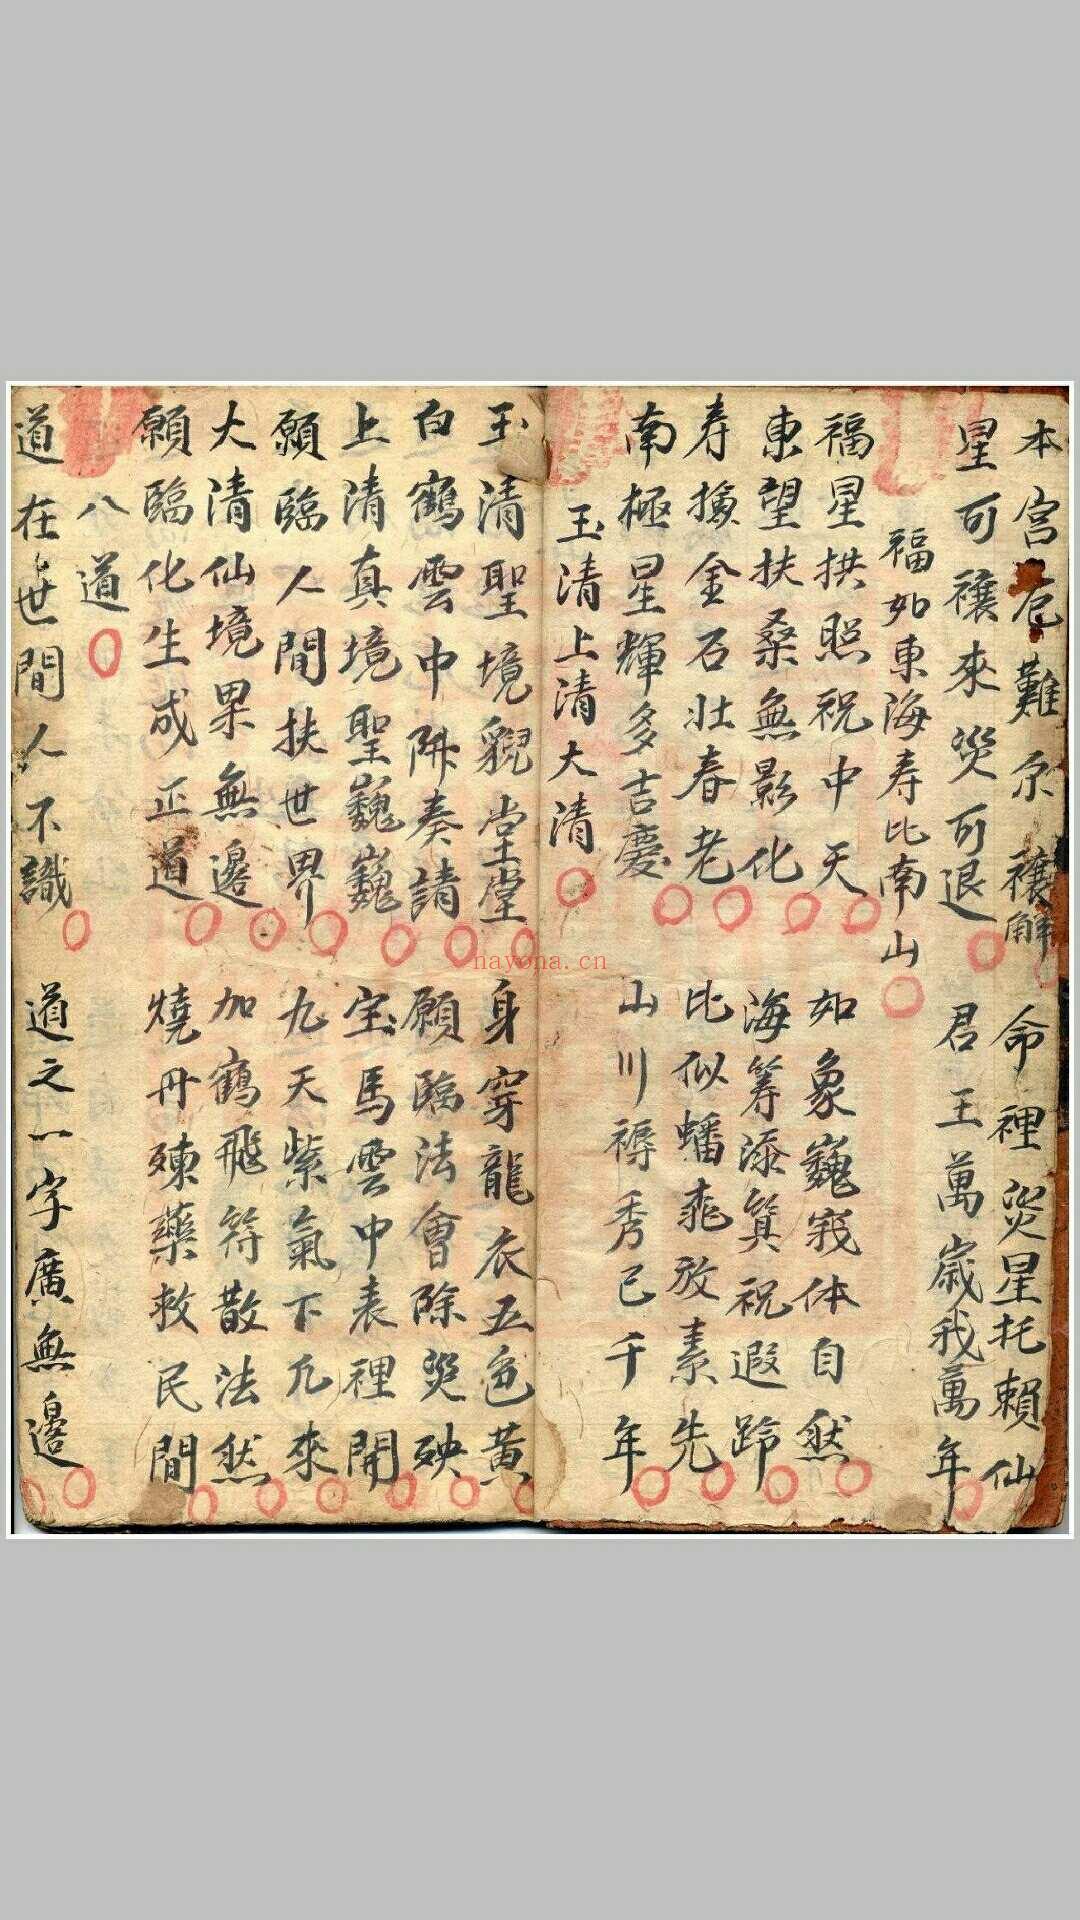 本宮厄難尔禳解　命裡災星托賴仙
星可禳來災可退　君王萬歲我萬年
福如東海寿比南山
福星拱照祝中天　如象巍峩体自然
東望扶桑無影化　海筹添筭祝遐齡
寿擯金石壮春老　比似蟠桃放素先
南極星輝多吉慶　山川褥秀已千年
玉清上清大清
玉清聖境貌堂堂　身穿龍衣五色黃
白鶴雲中陞奏請　願臨法會除災殃
上清真境聖巍巍　宝馬雲中表裡開
願臨人間扶世界　九天紫氣下凢來
大清仙境果無邊　加鶴飛符散法然
願臨化生成正道　燒丹煉藥救民間
八道
道在世間人不識　道之一字廣無邊
nayona.cn